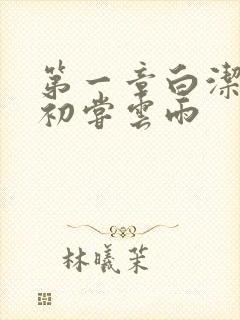 第一章白潔
初嘗雲雨
林曦茉